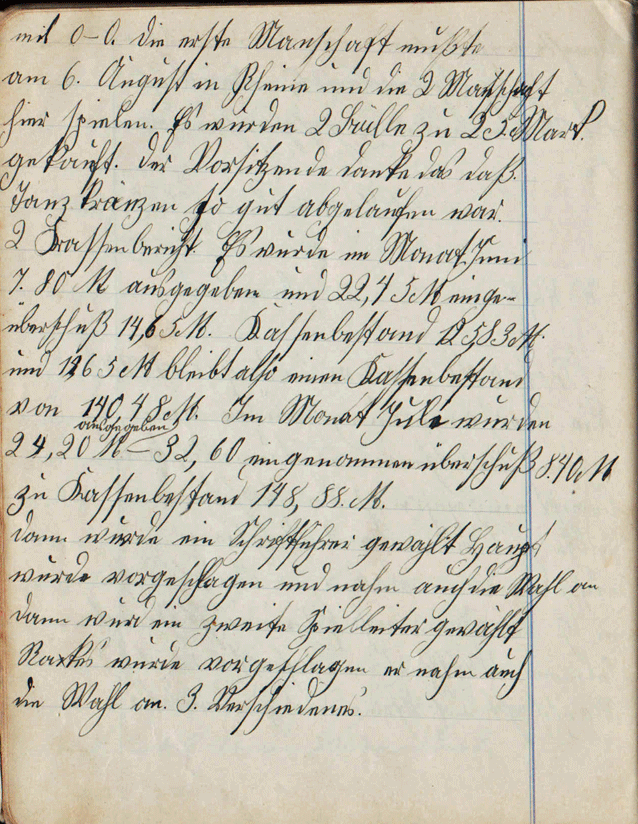 mit 0-0. Die erste Manschaft mußte
am 6. August in Rheine und die 2 Manschaft
hier spielen. Es wurden 2 Bälle zu 25 Mark.
gekauft. Der Vorsitzende dankte das daß.
Tanzkränzen so gut abgelaufen war.
2 Kassenbericht. Es wurde im Monat Juni
7.80 M ausgegeben und 22,45 M einge-
überschuß 14,65 M. Kassenbestand 125,83 M.
und 1465 M bleibt also einen Kassenbestand
von 140,48 M. Im Monat Juli wurden
ausgegeben
24,20 M – 32,60 eingenommen überschuß 8.40 M
zu Kassenbestand 148,88. M.
Dann wurde ein Schriftführer gewählt Haupt
wurde vorgeschlagen und nahm auch die Wahl an
Dann wurd ein zweite Spielleiter gewählt
wurde vorgeschlagen er nahm auch
die Wahl an. 3. Verschiedenes.